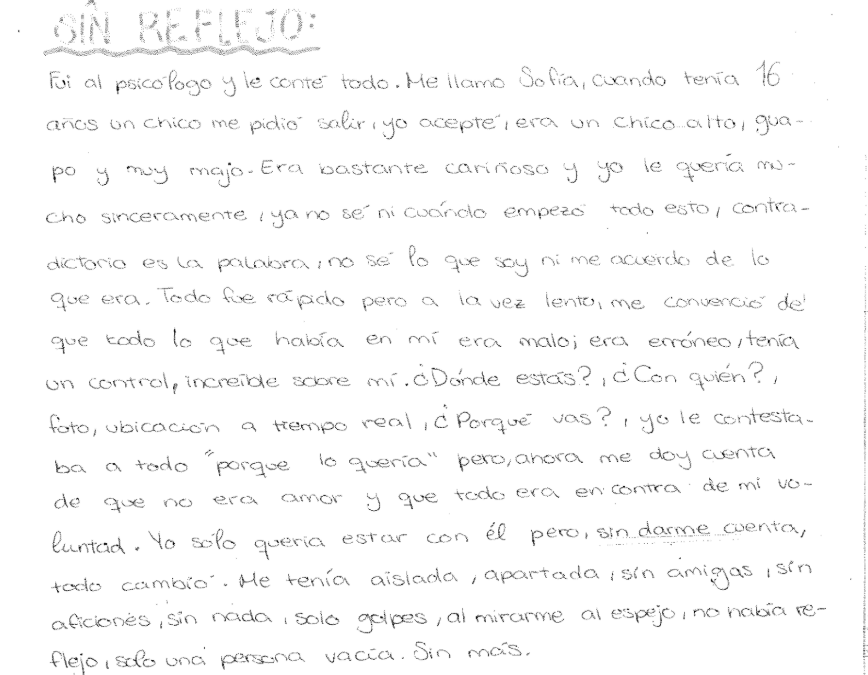 SIN REFLEJO:
Fui al psicólogo y le conté todo. Me llamo Sofía, cuando tenía 16
años un chico me pidió salir, yo acepté, era un chico alto, gua-
po y muy majo. Era bastante cariñoso y yo le quería mu-
cho sinceramente, ya no sé ni cuándo empezó todo esto, contra-
dictorio es la palabra, no sé lo que soy ni me acuerdo de lo
que era. Todo fue rápido pero a la vez lento, me convenció de
que todo lo que había en mí era malo; era erróneo, tenía
un control, increíble sobre mí. ¿Dónde estás?, ¿Con quién?,
foto, ubicación a tiempo real, ¿Porqué vas?, yo le contesta-
ba a todo "porque lo quería" pero, ahora me doy cuenta
de que no era amor y que todo era en contra de mi vo-
luntad. Yo sólo quería estar con él pero, sin darme cuenta,
todo cambió. Me tenía aislada, apartada, sin amigas, sin
aficiones, sin nada, solo golpes, al mirarme al espejo, no había re-
flejo, solo una persona vacía. Sin más.